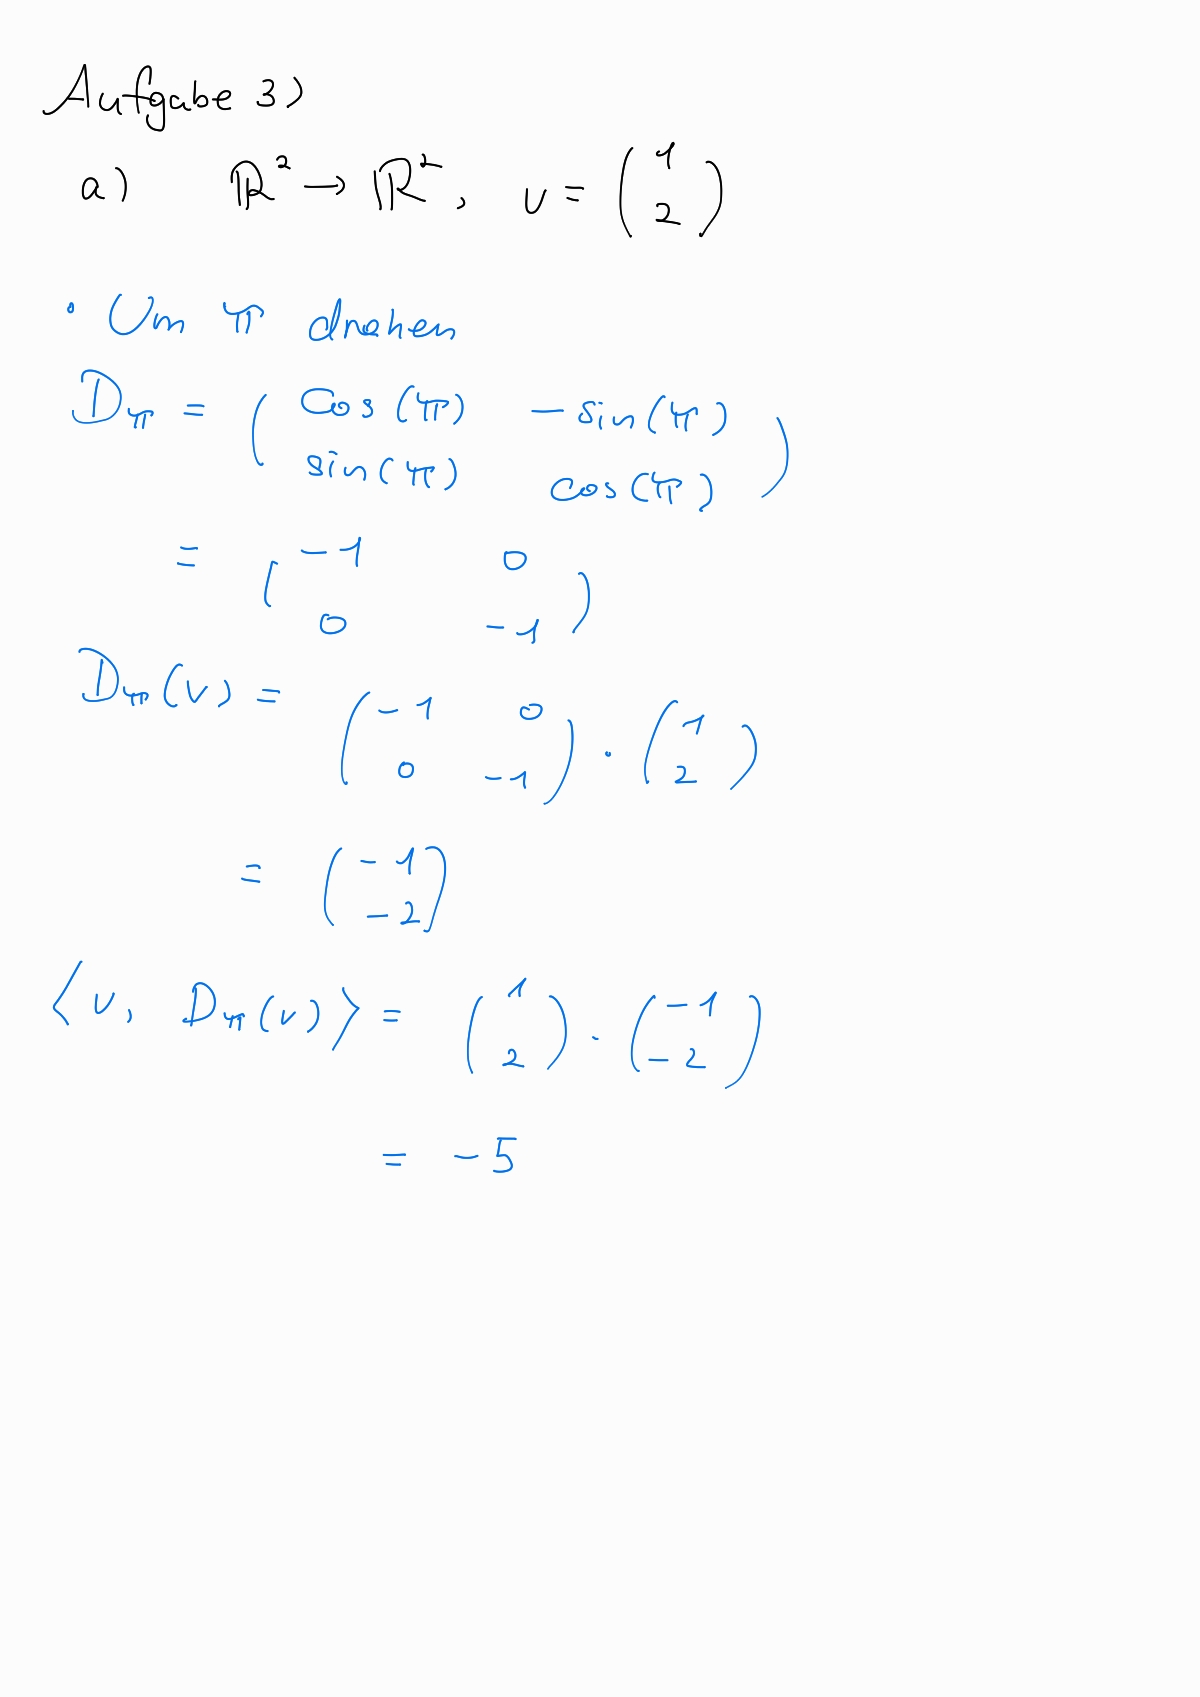 Aufgabe 3)
a) ℝ² → ℝ², v = (1 2)
• Um π drehen
D_π = ( cos(π) -sin(π)
sin(π) cos(π) )
= ( -1 0
0 -1 )
D_π(v) = ( -1 0
0 -1 ) · ( 1
2 )
= ( -1
-2 )
⟨v, D_π(v)⟩ = ( 1
2 ) · ( -1
-2 )
= -5